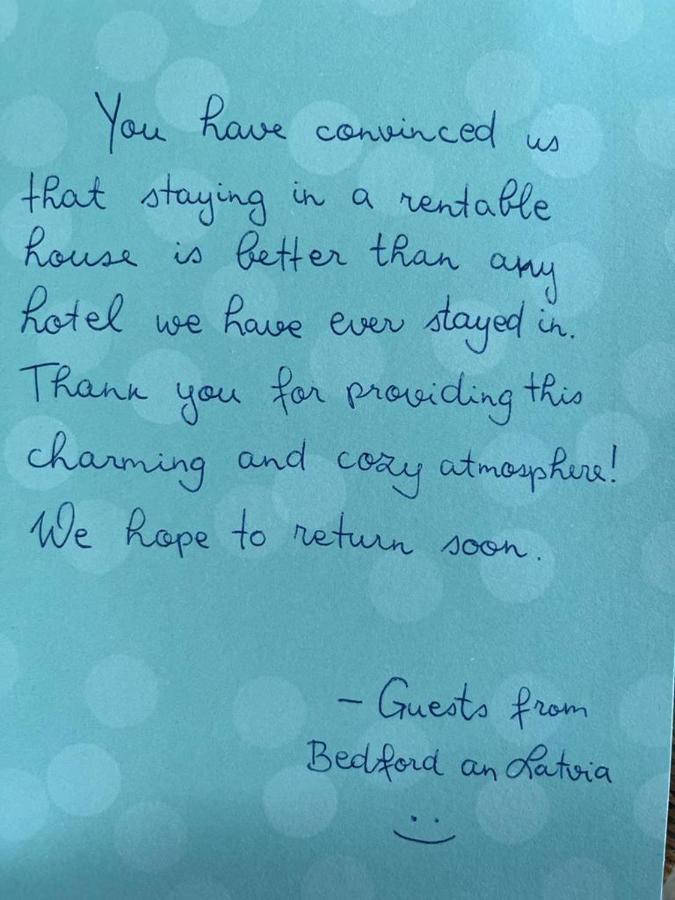 You have convinced us
that staying in a rentable
house is better than any
hotel we have ever stayed in.
Thank you for providing this
charming and cozy atmosphere!
We hope to return soon.
- Guests from
Bedford an Latvia